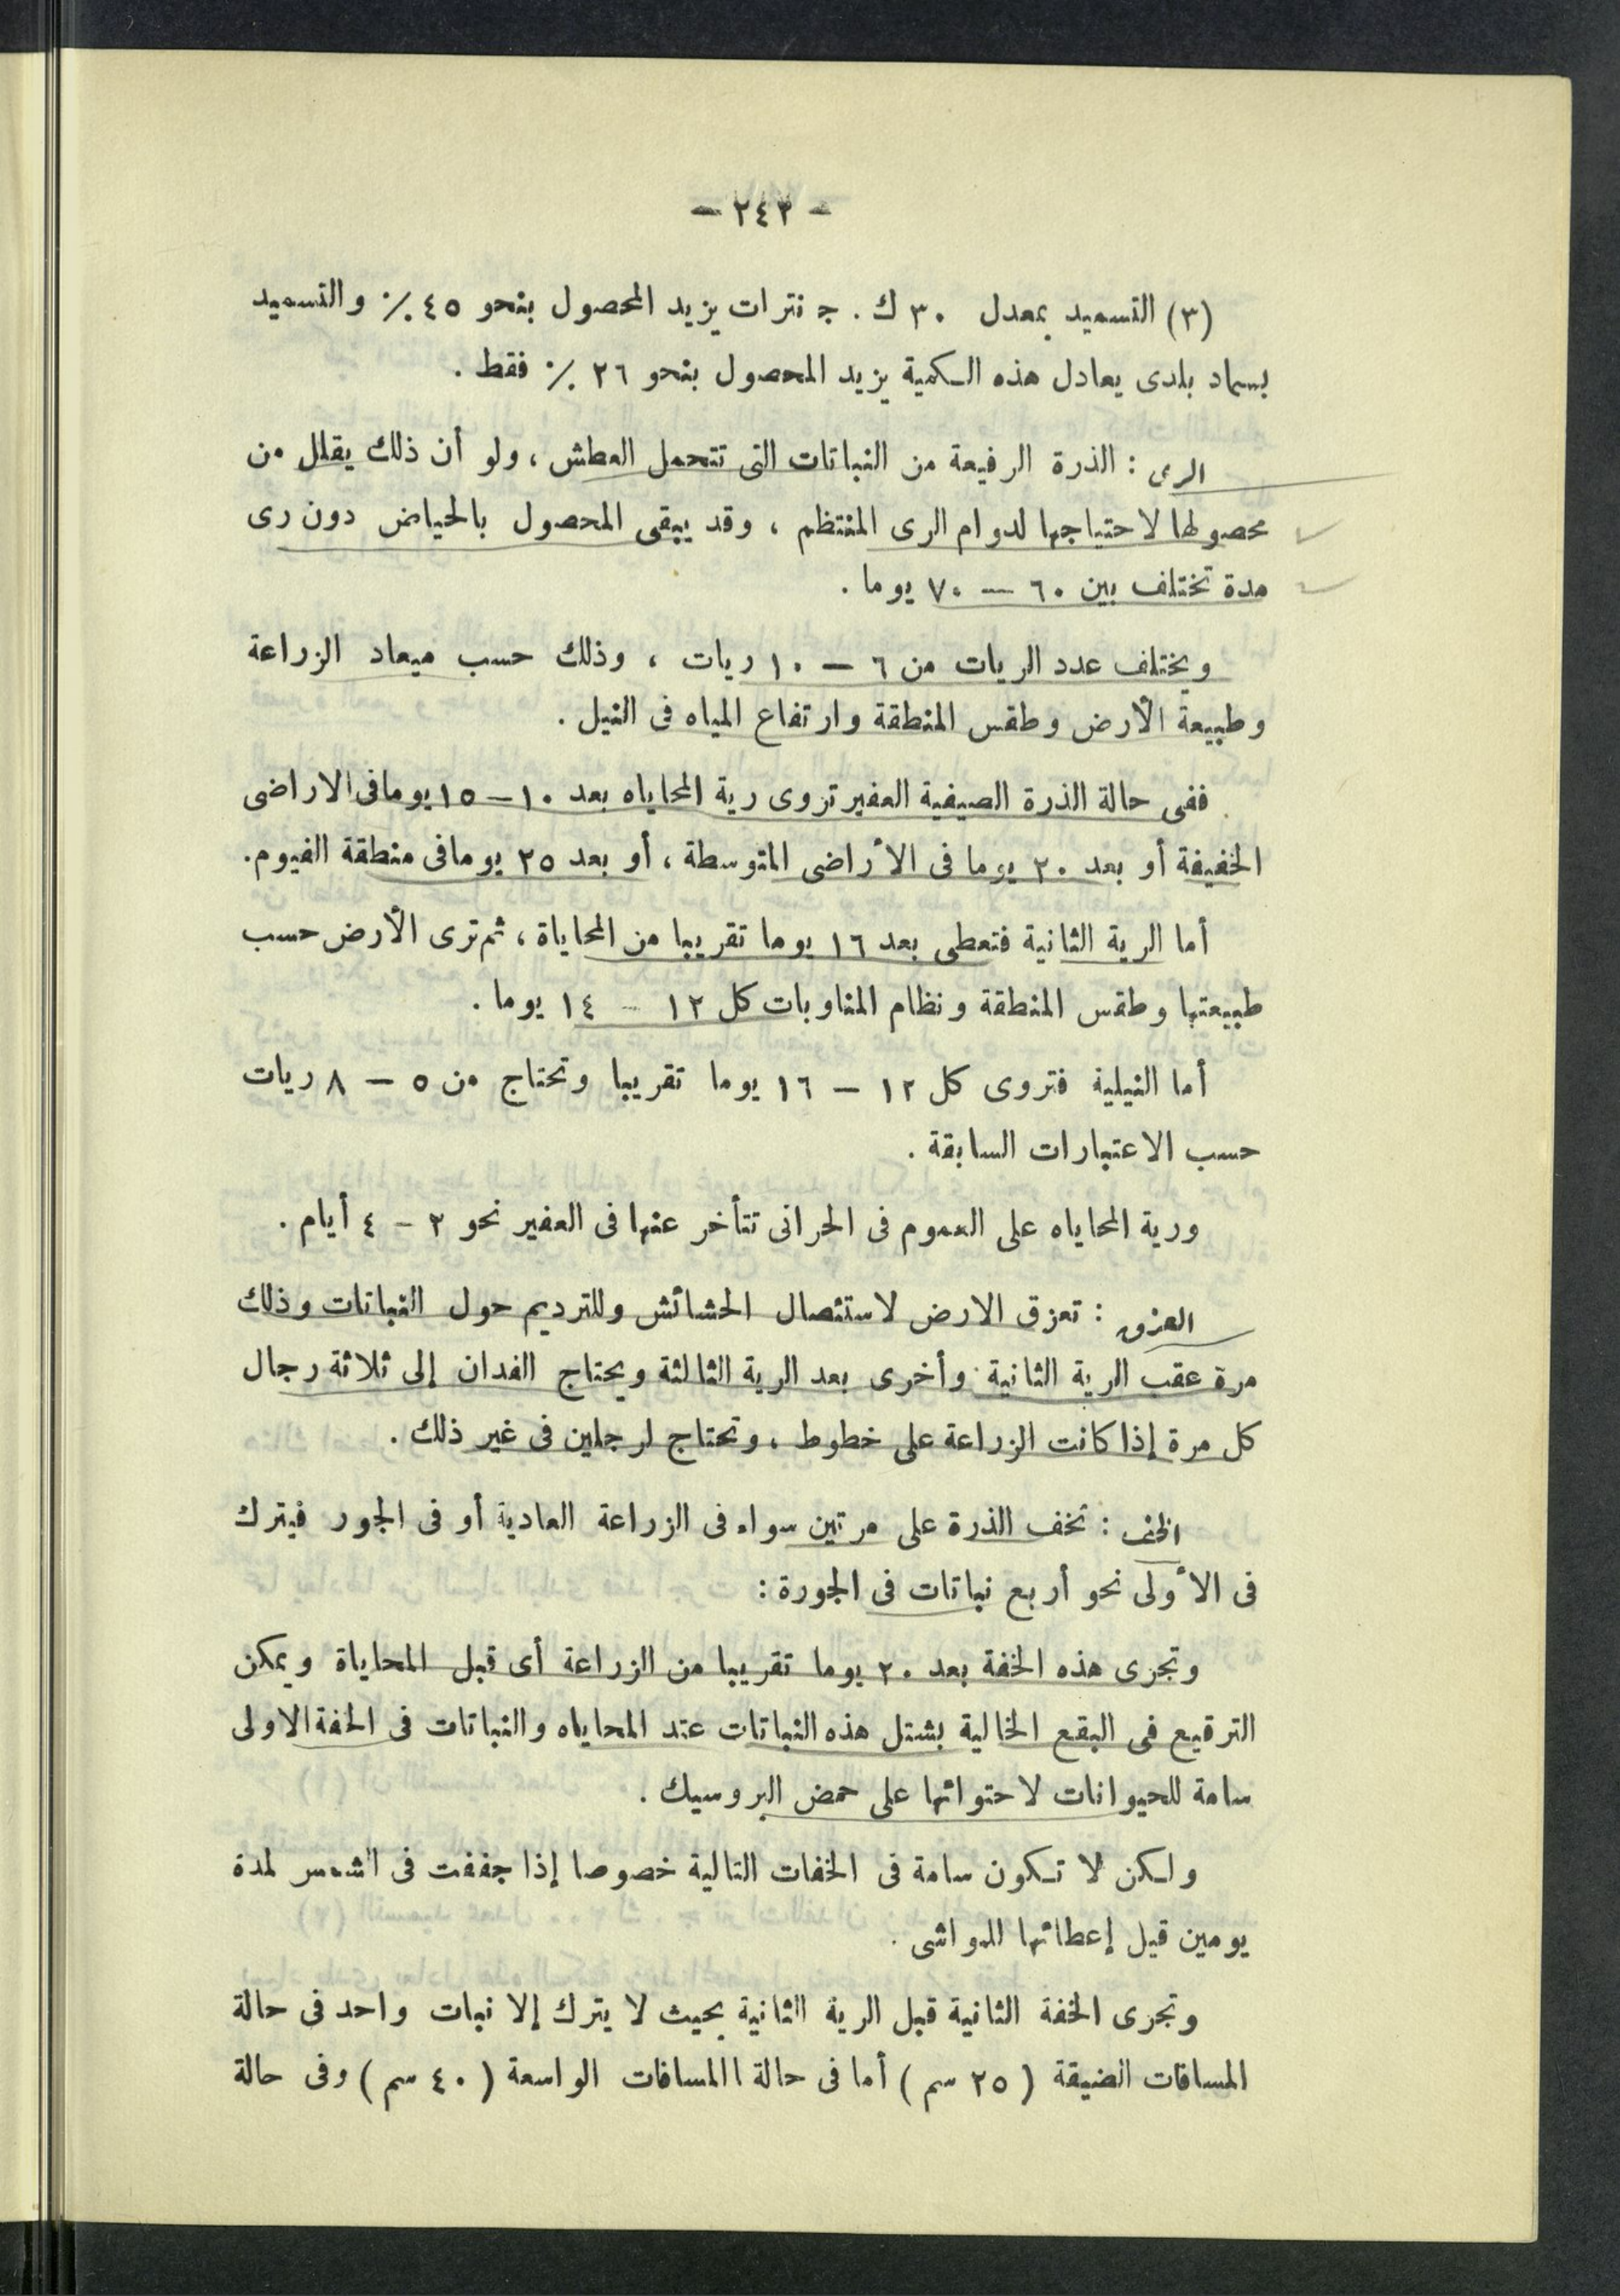 - ٢٤٣ -
(٣) التسميد بمعدل ٣٠ ك . ج نترات يزيد المحصول بنحو ٤٥ ٪ والتسميد
بسماد بلدى يعادل هذه الكمية يزيد المحصول بنحو ٢٦ ٪ فقط .
الرى : الذرة الرفيعة من النباتات التى تتحمل العطش ، ولو أن ذلك يقلل من
محصولها لاحتياجها لدوام الرى المنتظم ، وقد يبقى المحصول بالحياض دون رى
مدة تختلف بين ٦٠ — ٧٠ يوما .
ويختلف عدد الريات من ٦ — ١٠ ريات ، وذلك حسب ميعاد الزراعة
وطبيعة الأرض وطقس المنطقة وارتفاع المياه فى النيل .
ففى حالة الذرة الصيفية العفير تروى رية المحاياه بعد ١٠ — ١٥ يوما فى الاراضى
الخفيفة أو بعد ٢٠ يوما فى الأراضى المتوسطة ، أو بعد ٢٥ يوما فى منطقة الفيوم .
أما الرية الثانية فتعطى بعد ١٦ يوما تقريبا من المحاياة ، ثم ترى الأرض حسب
طبيعتها وطقس المنطقة ونظام المناوبات كل ١٢ - ١٤ يوما .
أما النيلية فتروى كل ١٢ — ١٦ يوما تقريبا وتحتاج من ٥ — ٨ ريات
حسب الاعتبارات السابقة .
ورية المحاياه على العموم فى الحراتى تتأخر عنها فى العفير نحو ٢ - ٤ أيام .
العزق : تعزق الارض لاستئصال الحشائش وللترديم حول النباتات وذلك
مرة عقب الرية الثانية وأخرى بعد الرية الثالثة ويحتاج الفدان إلى ثلاثة رجال
كل مرة إذا كانت الزراعة على خطوط ، وتحتاج لرجلين فى غير ذلك .
الخف : تخف الذرة على مرتين سواء فى الزراعة العادية أو فى الجور فيترك
فى الأولى نحو أربع نباتات فى الجورة :
وتجرى هذه الخفة بعد ٢٠ يوما تقريبا من الزراعة أى قبل المحاياة ويمكن
الترقيع فى البقع الخالية بشتل هذه النباتات عند المحاياه والنباتات فى الخفة الاولى
سامة للحيوانات لاحتوائها على حمض البروسيك .
ولكن لا تكون سامة فى الخفات التالية خصوصا إذا جففت فى الشمس لمدة
يومين قبل إعطائها للمواشى .
وتجرى الخفة الثانية قبل الرية الثانية بحيث لا يترك إلا نبات واحد فى حالة
المسافات الضيقة ( ٢٥ سم ) أما فى حالة االمسافات الواسعة ( ٤٠ سم ) وفى حالة